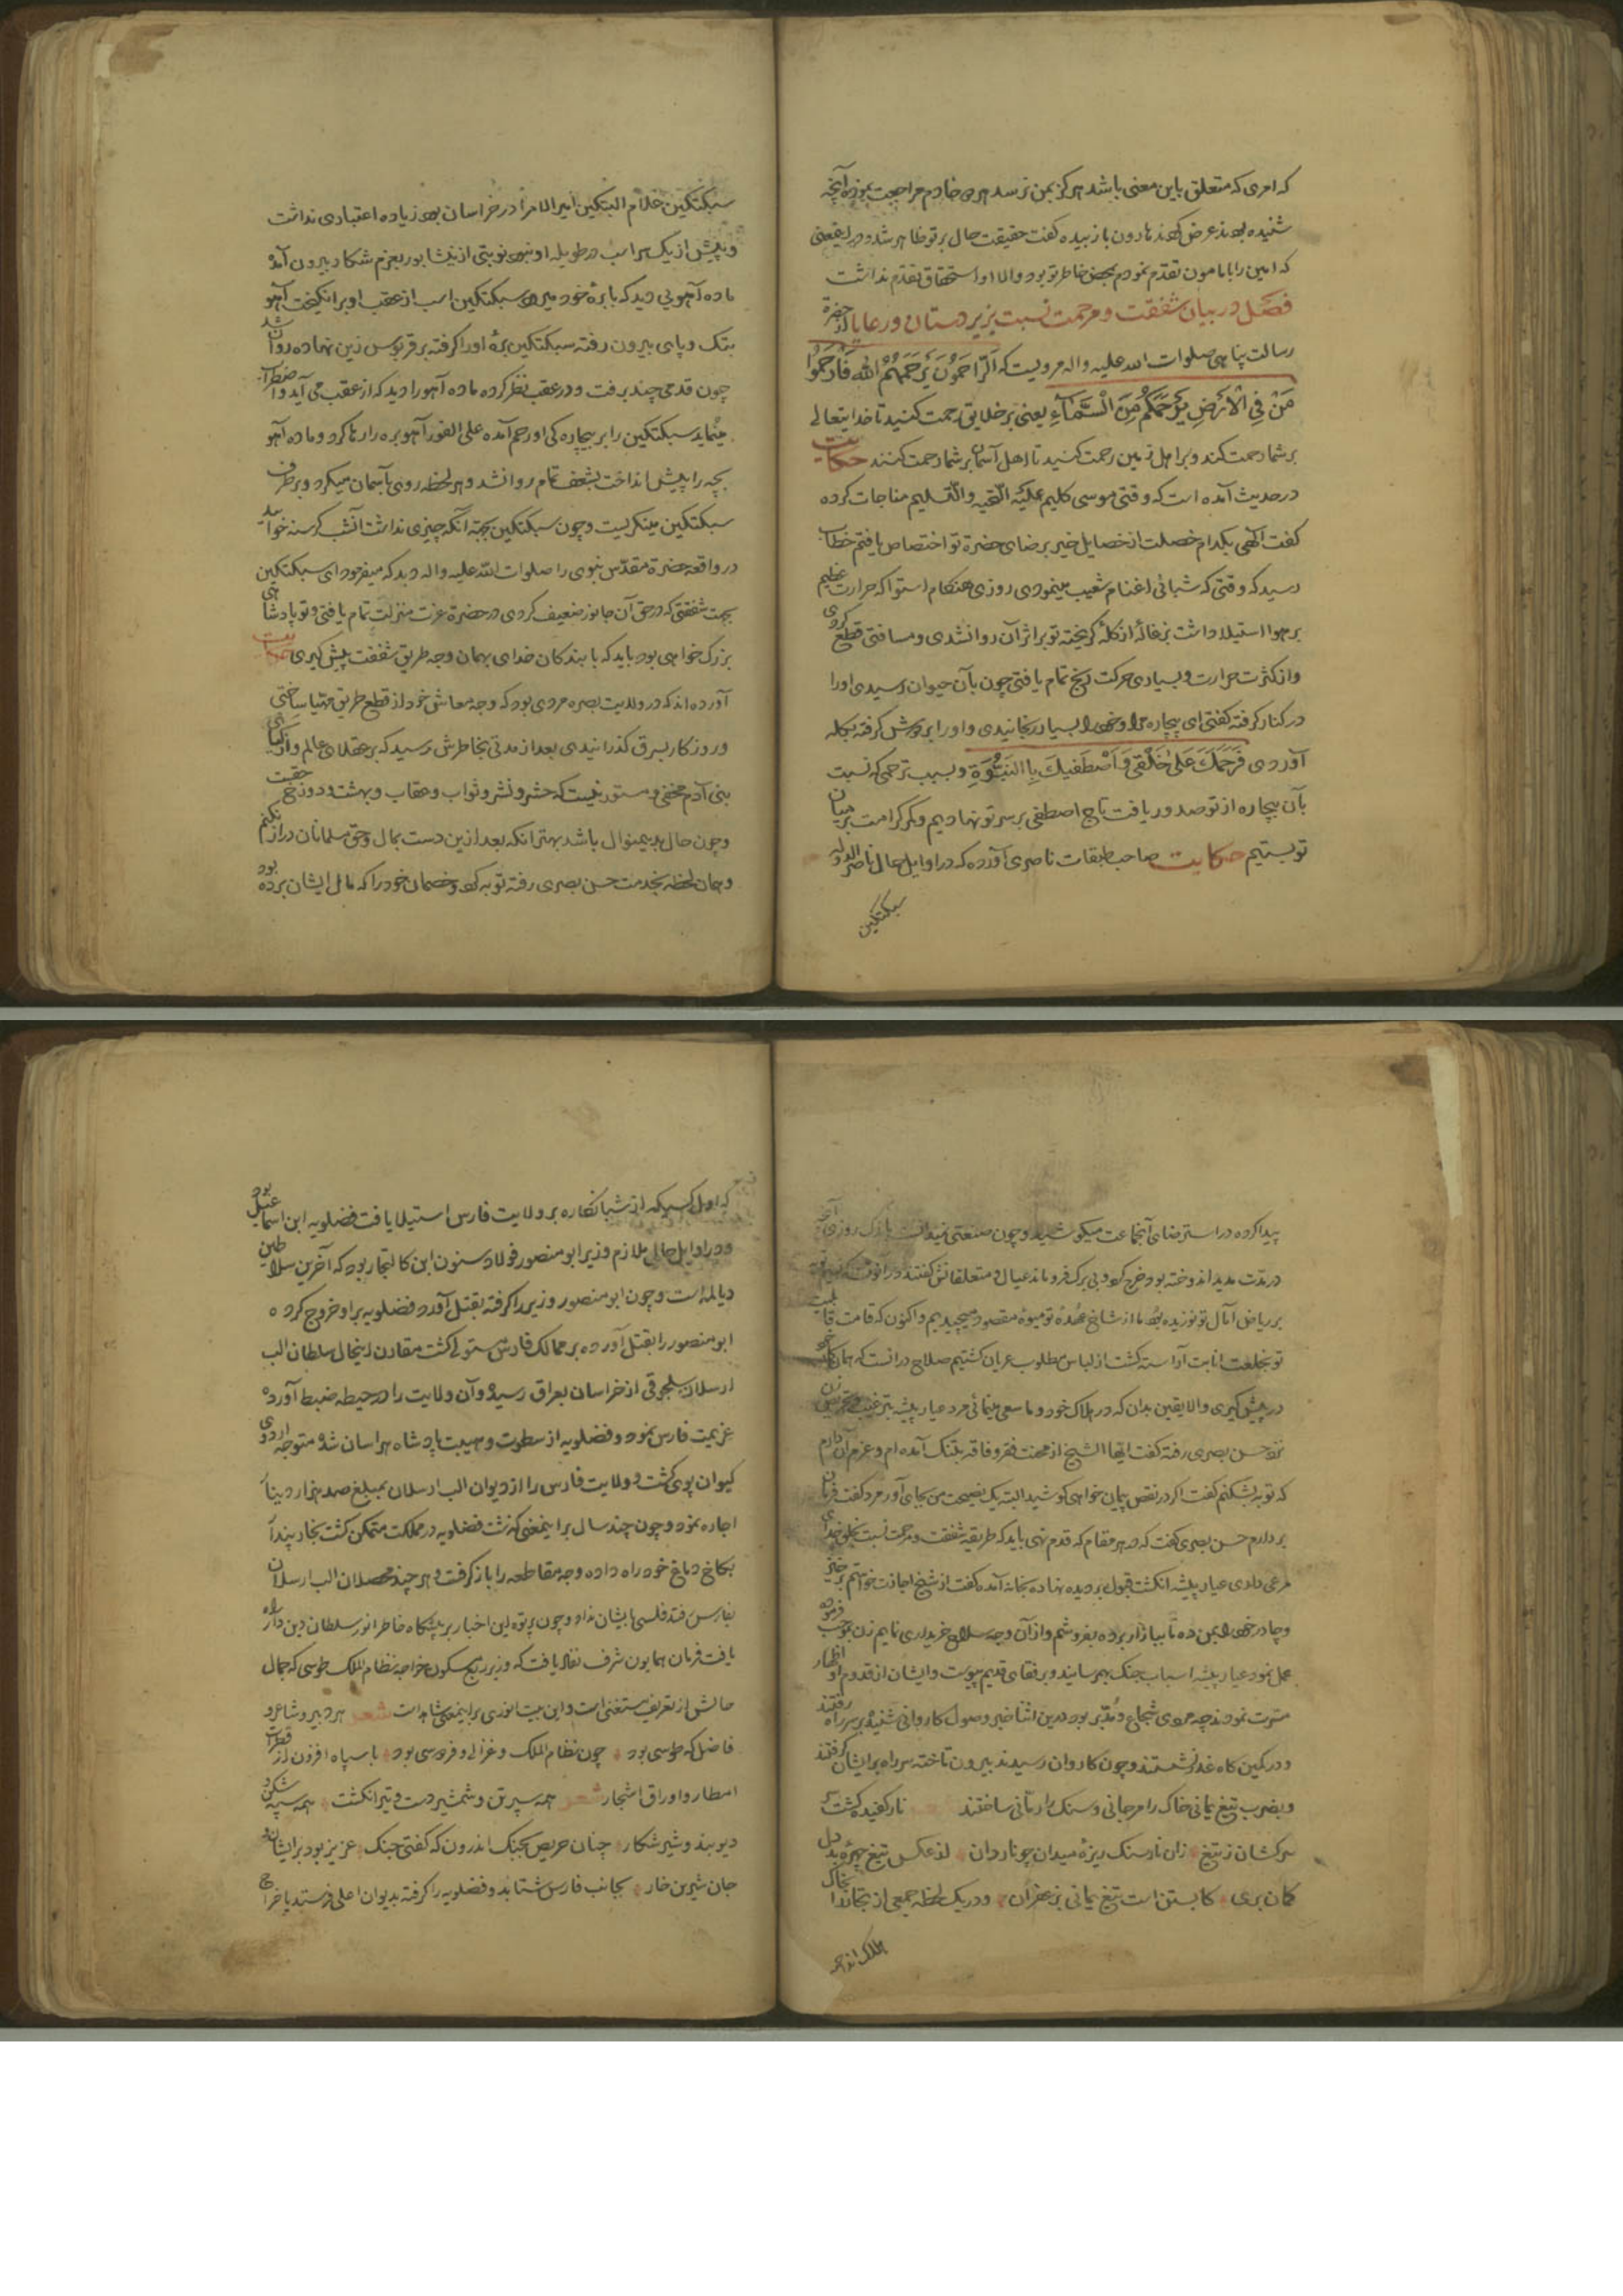 که امری که متعلق باین معنی باشد هرگز بمن نرسد هر دو خادم مراجعت نموده آنچه
شنیده بودند عرض کردند هارون با زبیده گفت حقیقت حال بر تو ظاهر شد و مرا یقینی
که امین را با مامون تقدم نمودم بمحض خاطر تو بود والا او استحقاق تقدم نداشت
فصل در بیان شفقت و مرحمت نسبت بزیردستان و رعایا از حضرة
رسالت پناهی صلوات الله علیه واله مرویست که اَلرّاحِمُونَ یَرحَمُهُمُ الله فَارحَمُوا
مَنْ فِی الْاَرْضِ یَرْحَمْکُمْ مَنْ فِی السَّمَآءِ یعنی بر خلایق رحمت کنید تا خدایتعالی
بر شما رحمت کند و بر اهل زمین رحمت کنید تا اهل آسمان بر شما رحمت کنند حکایت
در حدیث آمده است که وقتی موسی کلیم علیه التحیه والتسلیم مناجات کرده
گفت الهی بکدام خصلت از خصایل خیر برضای حضرة تو اختصاص یافتم خطاب
رسید که وقتی که شبانی اغنام شعیب مینمودی روزی هنکام استوا که حرارت عظیم
بر هوا استیلا داشت بزغالهٔ از کله کریخته تو بر اثر آن روان شدی و مسافتی قطع کردی
واز کثرت حرارت و بسیاری حرکت رنج تمام یافتی چون بآن حیوان رسیدی اورا
در کنار کرفته کفتی ای بیچاره مرا و خود را بسیار رنجانیدی و اورا بر دوش کرفته بکله
آوردی فَرَحِمَکَ عَلی خَلْقی وَاَصْطَفیکَ بِالنُبُوَّةِ و بسبب ترحمی که نسبت
بآن بیچاره از تو صدور یافت تاج اصطفی بر سر تو نهادیم و کمر کرامت بر میان
تو بستیم حکایت صاحب طبقات ناصری آورده که در اوایل حال ناصر الدوله
سبکتکین
سبکتکین غلام البتکین امیر الامرا در خراسان بود زیاده اعتباری نداشت
و بیش از یک سر اسب در طویله او نبود نوبتی از نیشابور بعزم شکار بیرون آمد
ماده آهویی دید که با برهٔ خود میرود سبکتکین اسب از عقب او برانکیخت آهو
بتک و پای بیرون رفته سبکتکین برهٔ اورا کرفته بر قربوس زین نهاده روان شد
چون قدمی چند برفت و در عقب نظر کرده ماده آهو را دید که از عقب می آید و اضطراب
مینماید سبکتکین را بر بیچاره کی او رحم آمده علی الفور آهو بره را رها کرد و ماده آهو
بچه را پیش انداخت بشعف تمام روانشد و هر لحظه روی بآسمان میکرد و بر طرف
سبکتکین مینکریست و چون سبکتکین بجهة آنکه چیزی نداشت آنشب کرسنه خوابید
در واقعه حضرة مقدس نبوی را صلوات الله علیه واله دید که میفرمود ای سبکتکین
بجهت شفقتی که در حق آن جانور ضعیف کردی در حضرة عزت منزلت تمام یافتی و تو پادشاهی
بزرک خواهی بود باید که با بندکان خدای بهمان وجه طریق شفقت پیش کیری حکایت
آورده اند که در ولایت بصره مردی بود که وجه معاش خود از قطع طریق مهیا ساختی
و روزکار بسرق کذرانیدی بعد از مدتی بخاطرش رسید که بر عقلای عالم و ازکیای
بنی آدم مخفی و مستور نیست که حشر و نشر و ثواب و عقاب و بهشت و دوزخ حقیت
و چون حال بدینمنوال باشد بهتر آنکه بعد از این دست بمال و حق مسلمانان دراز نکنم
و همان لحظه بخدمت حسن بصری رفته توبه کرد و خصمان خود را که مال ایشان برده بود
پیدا کرده در استرضای آنجماعت میکوشید و چون صنعتی نمیدانست باندک روزی آنچه
در مدّت مدید اندوخته بود خرج کرد و بی برک فروماند عیال و متعلقانش گفتند در آنوقت که
بر ریاض آمال تو نوزیده بود ما از شاخ عهدهٔ تو میوهٔ مقصود میچیدیم و اکنون که قامت قابلیت
تو بخلعت انابت آراسته کشت از لباس مطلوب عریان کشتیم صلاح در آنست که همان کار
در پیش کیری والا یقین بدان که در هلاک خود و ما سعی مینمائی مرد عیار پیشه بترغیب
نزد حسن بصری رفته کفت ایها الشیخ از محنت فقر و فاقه بتنک آمده ام و عزم آن دارم
که توبه بشکنم گفت اکر در نقص پیمان خواهی کوشید البته یک نصیحت من بجای آور مرد کفت فرمان
بردارم حسن بصری گفت که در هر مقام که قدم نهی باید که طریقه شفقت و مرحمت نسبت بخلق خدای
مرعی داری عیار پیشه انکشت قبول بر دیده نهاده بخانه آمده کفت از شیخ اجازت خواستم برخیز
و چادر خود بمن ده تا ببازار برده بفروشم و از آن وجه سلاح خریداری نمایم زن بموجب فرموده
عمل نمود عیار پیشه اسباب جنک بهم رسانید و برفقای قدیم پیوست و ایشان از قدوم او اظهار
مسرت نمودند چه مردی شجاع و مدبر بود درین اثنا خبر وصول کاروانی شنیده بر سر راه رفتند
و در کمین کاه غدر نشستند و چون کاروان رسیدند بیرون تاخته سر راه بر ایشان کرفتند
و بضرب تیغ یمانی خاک را مرجانی و سنک را رمانی ساختند شعر نار کفیده کشت
سرکشان ز تیغ زان نار سنک ریزهٔ میدان چو ناردان از عکس تیغ چهرهٔ بددل
کمان بری کابستن است تیغ یمانی بزعفران و در یک لحظه جمعی از تجار را بخاک
هلاک انداخته
که اول کسیکه از شبانکاره بر ولایت فارس استیلا یافت فضلویه ابن اسماعیل بود
و در اوایل حال ملازم وزیر ابو منصور فولاد ستون ابن کالنجار بود که آخرین سلاطین
دیالمه است و چون ابو منصور وزیر را کرفته بقتل آورد فضلویه بر او خروج کرده
ابو منصور را بقتل آورده بر ممالک فارس مستولی کشت مقارن اینحال سلطان الب
ارسلان سلجوقی از خراسان بعراق رسید و آن ولایت را در حیطه ضبط آورده
عزیمت فارس نمود و فضلویه از سطوت و هیبت پادشاه هراسان شده متوجه اردوی
کیوان پوی کشت و ولایت فارس را از دیوان الب ارسلان بمبلغ صد هزار دینار
اجاره نمود و چون چند سال بر اینمعنی کذشت فضلویه در مملکت متمکن کشت بخار پندار
بکاخ دماغ خود راه داده وجه مقاطعه را باز کرفت و هر چند محصلان الب ارسلان
بفارس رفتند فلسی بایشان نداد و چون پرتو این اخبار بر پیشکاه خاطر انور سلطان دین دار راه
یافت فرمان همایون شرف نفاذ یافت که وزیر ربع مسکون خواجه نظام الملک طوسی که جمال
حالش از تعریف مستغنی است و این بیت انوری بر اینمعنی شاهد است شعر هر دبیر و شاعر و
فاضل که طوسی بود چون نظام الملک و غزالی و فردوسی بود با سپاه افزون از قطرات
امطار و اوراق اشجار شعر همه سپر تن و شمشیر دست و تیر انکشت همه سپه شکن
دیوبند و شیر شکار چنان حریص بجنک اندرون که کفتی جنک عزیز بود بر ایشان و
جان شیرین خوار بجانب فارس شتابد و فضلویه را کرفته بدیوان اعلی فرستد یا خراج